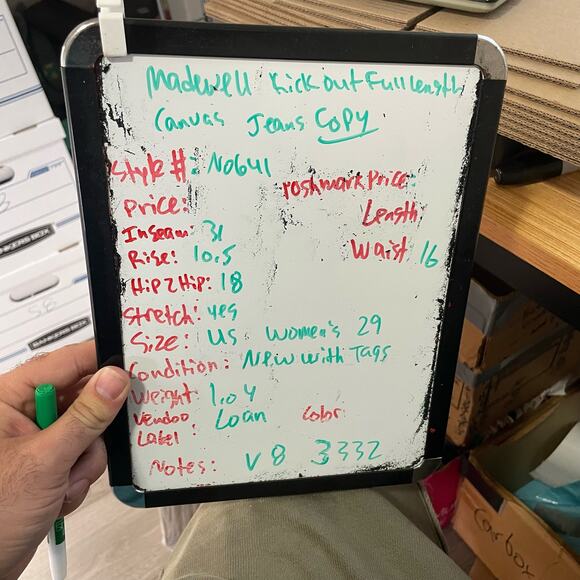 Madewell Kick out Full Length
Canvas Jeans COPY
Style #: N0641
Poshmark Price:
Price:
Length
Inseam: 31
Waist 16
Rise: 10.5
Hip 2 Hip: 18
Stretch: yes
Size: US Women's 29
Condition: New with Tags
Weight 1.04
Vendoo Label : Loan
Color:
Notes: V8 3332
BANKERS BOX
BANKERS BOX